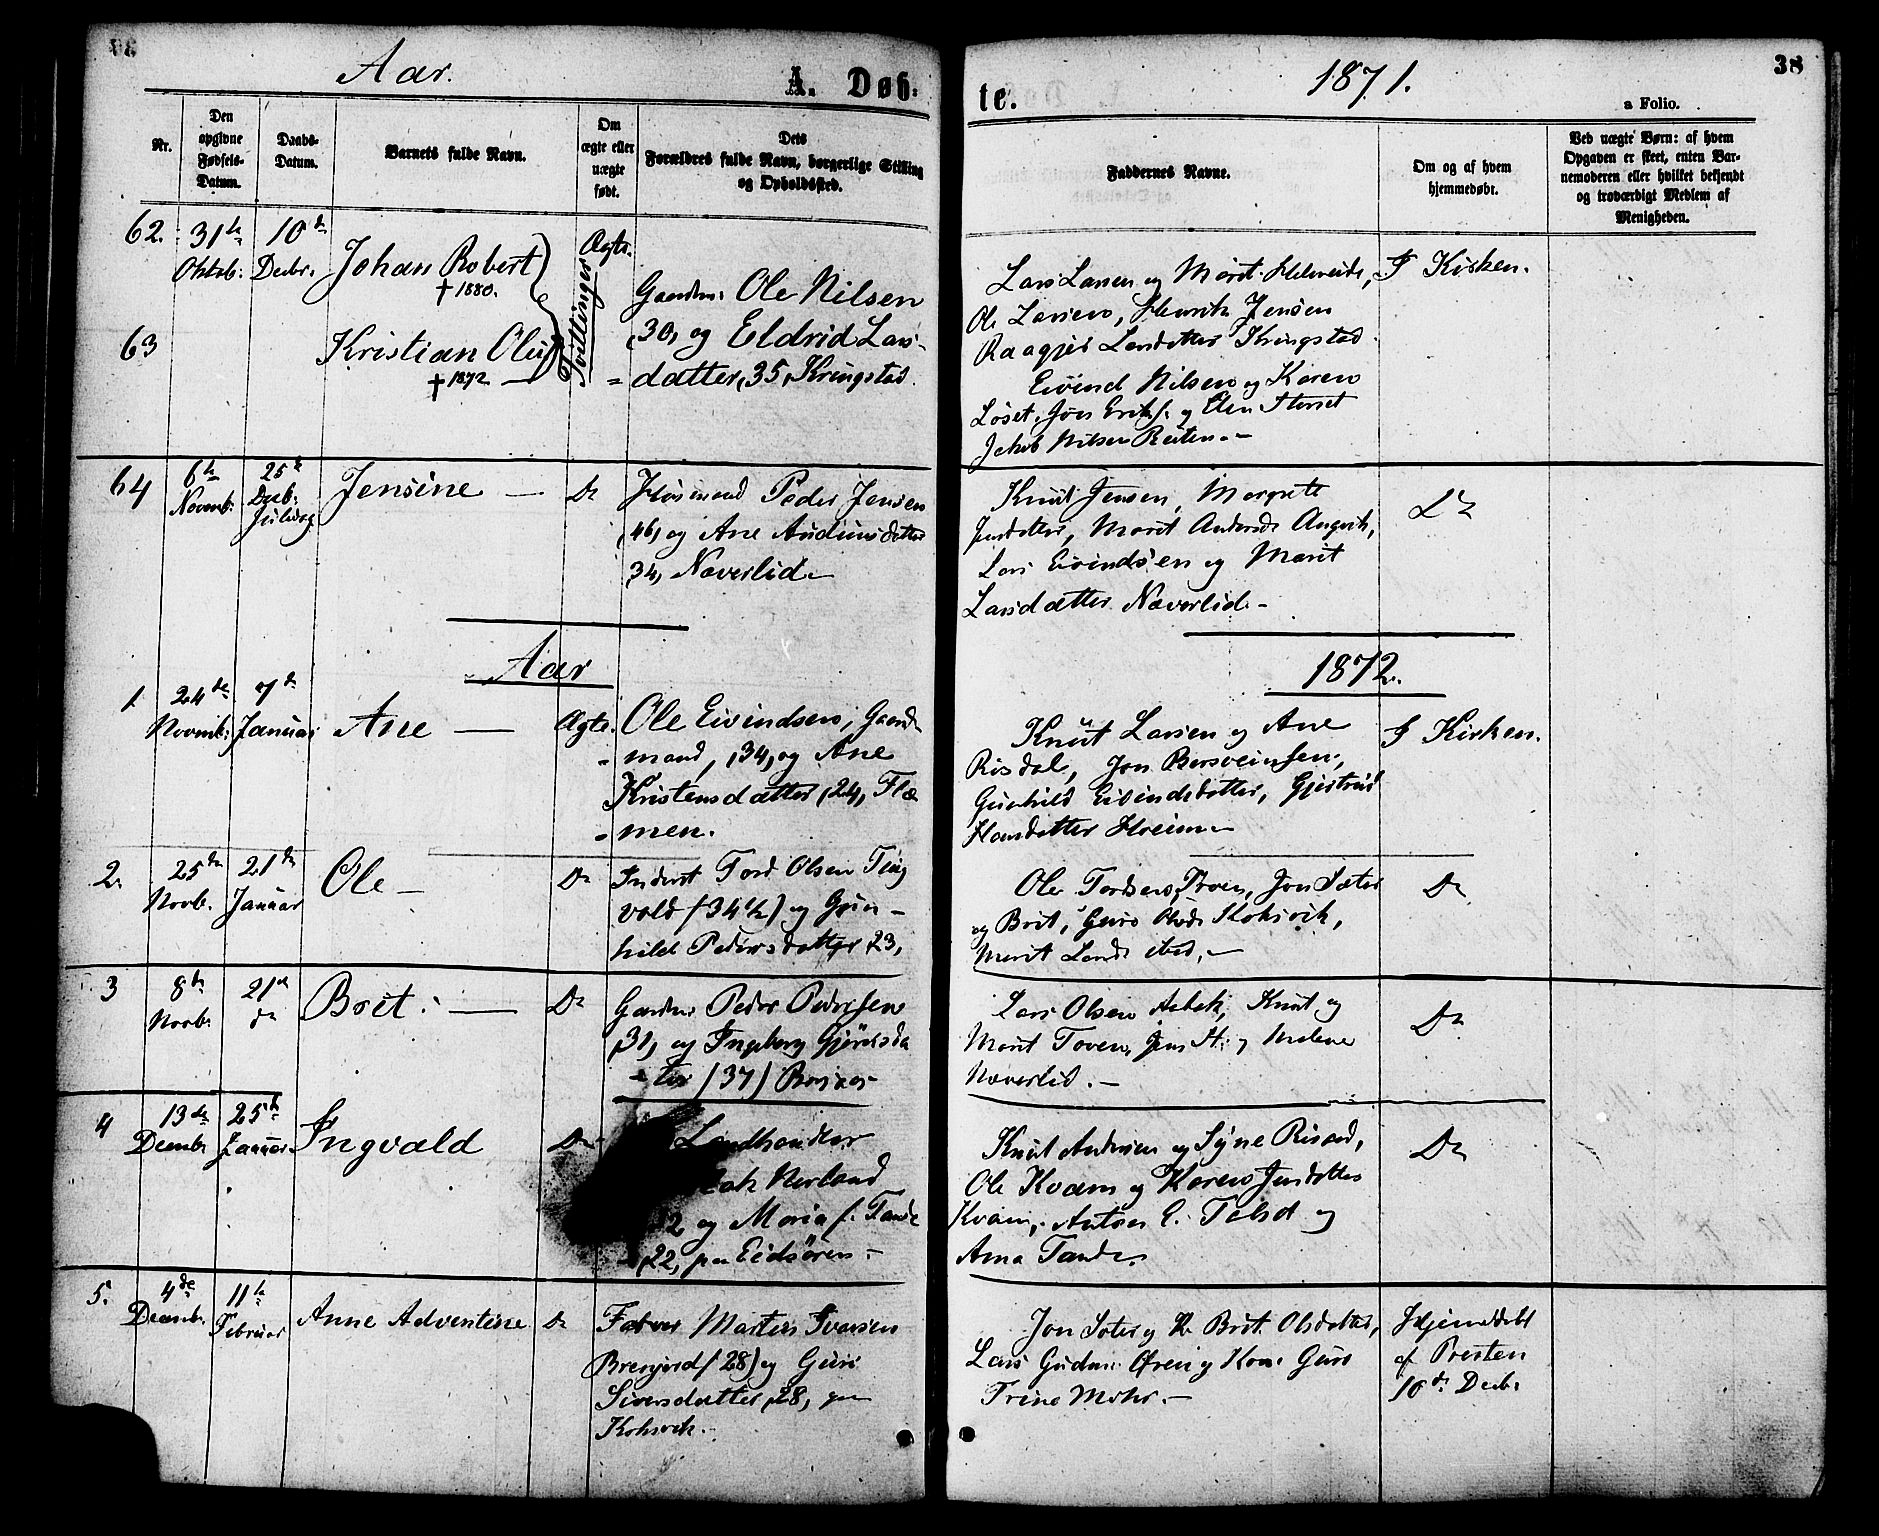 Aar. A. Døb-
te. 1871. 38
a Folio.
Nr.
Den opgivne Fødsels-Datum.
Daabs-Datum.
Barnets fulde Navn.
Om ægte eller uægte født.
Dets Forældres fulde Navn, borgerlige Stilling og Opholdssted.
Faddernes Navne.
Om og af hvem hjemmedøbt.
Ved uægte Børn: af hvem Opgaven er skeet, enten Barnemoderen eller hvilket bekjendt og troværdigt Medlem af Menigheden.
62. 31te 10de
Oktob: Decbr. Johan Robert Ægte.
† 1880.
63 Kristian Oluf Tvillinger
† 1872
Gaardm. Ole Nilsen
,30, og Eldrid Lars-
datter, 35, Kringstad.
Lars Larsen og Marit
Ole Larsen, Henrik Jensen
Larsdatter Kringstad.
Eivind Nilsen og Karen
Løset, Jon og Elen
Jakob Nilsen Reiten.-
I Kirken.
64 6te 25de
Novemb: Decb: Juledag
Jensine — Do
Husmand Peder Jensen
,46, og Ane Audunsdatter
34, Næverlid.
Knut Jensen, Margrete
Jensdatter, Marit Andersd. Angvik,
Lars Eivindsen og Marit
Larsdatter Næverlid.-
Do
Aar 1872.
1. 24de 7de
Novemb: Januar Ane — Ægte.
Ole Eivindsen, Gaard-
mand, ,34, og Ane
Kristensdatter, 24, Flæ-
men.
Knut Larsen og Ane
Risdal, Jon
Gunhild Eivindsdatter, Gjertrud
Hansdatter
I Kirken.
2. 25de 21de
Novb. Januar Ole — Do
Inderst Tord Olsen Ting
vold (34½) og Gun-
hild Pedersdatter, 23,
Ole Tordsen, Jon Sæter
og Brit, Guro Olsd. Koksvik,
Marit
Do
3 8de 21de
Novb. do Brit: — Do
Gaardm. Peder Pedersen
,31, og Ingeborg
ter (37)
Lars Olsen Aasbak, Knut og
Marit Toven, Jens
Næverlid.-
Do
4 13de 25de
Decemb. Januar Ingvald Do
Landhandler
Nerland
og Maria f. Tande
,22, paa Eidsøren.-
Knut Andersen og Syne
Ole Kvam og Karen Jensdatter
Kvam, Anton E. og
Anna Tande.
Do
5. 4de 11te
Decemb. Februar Anne Adventine Do
Farver Martin Iversen
(28) og Guri
Siversdatter, 28, paa
Koksvik.-
Jon Sæter og Brit Olsdatter,
Lars Øren og Kone Guro
Trine Mohr.-
Hjemmedøbt
af Presten
10de Decb.